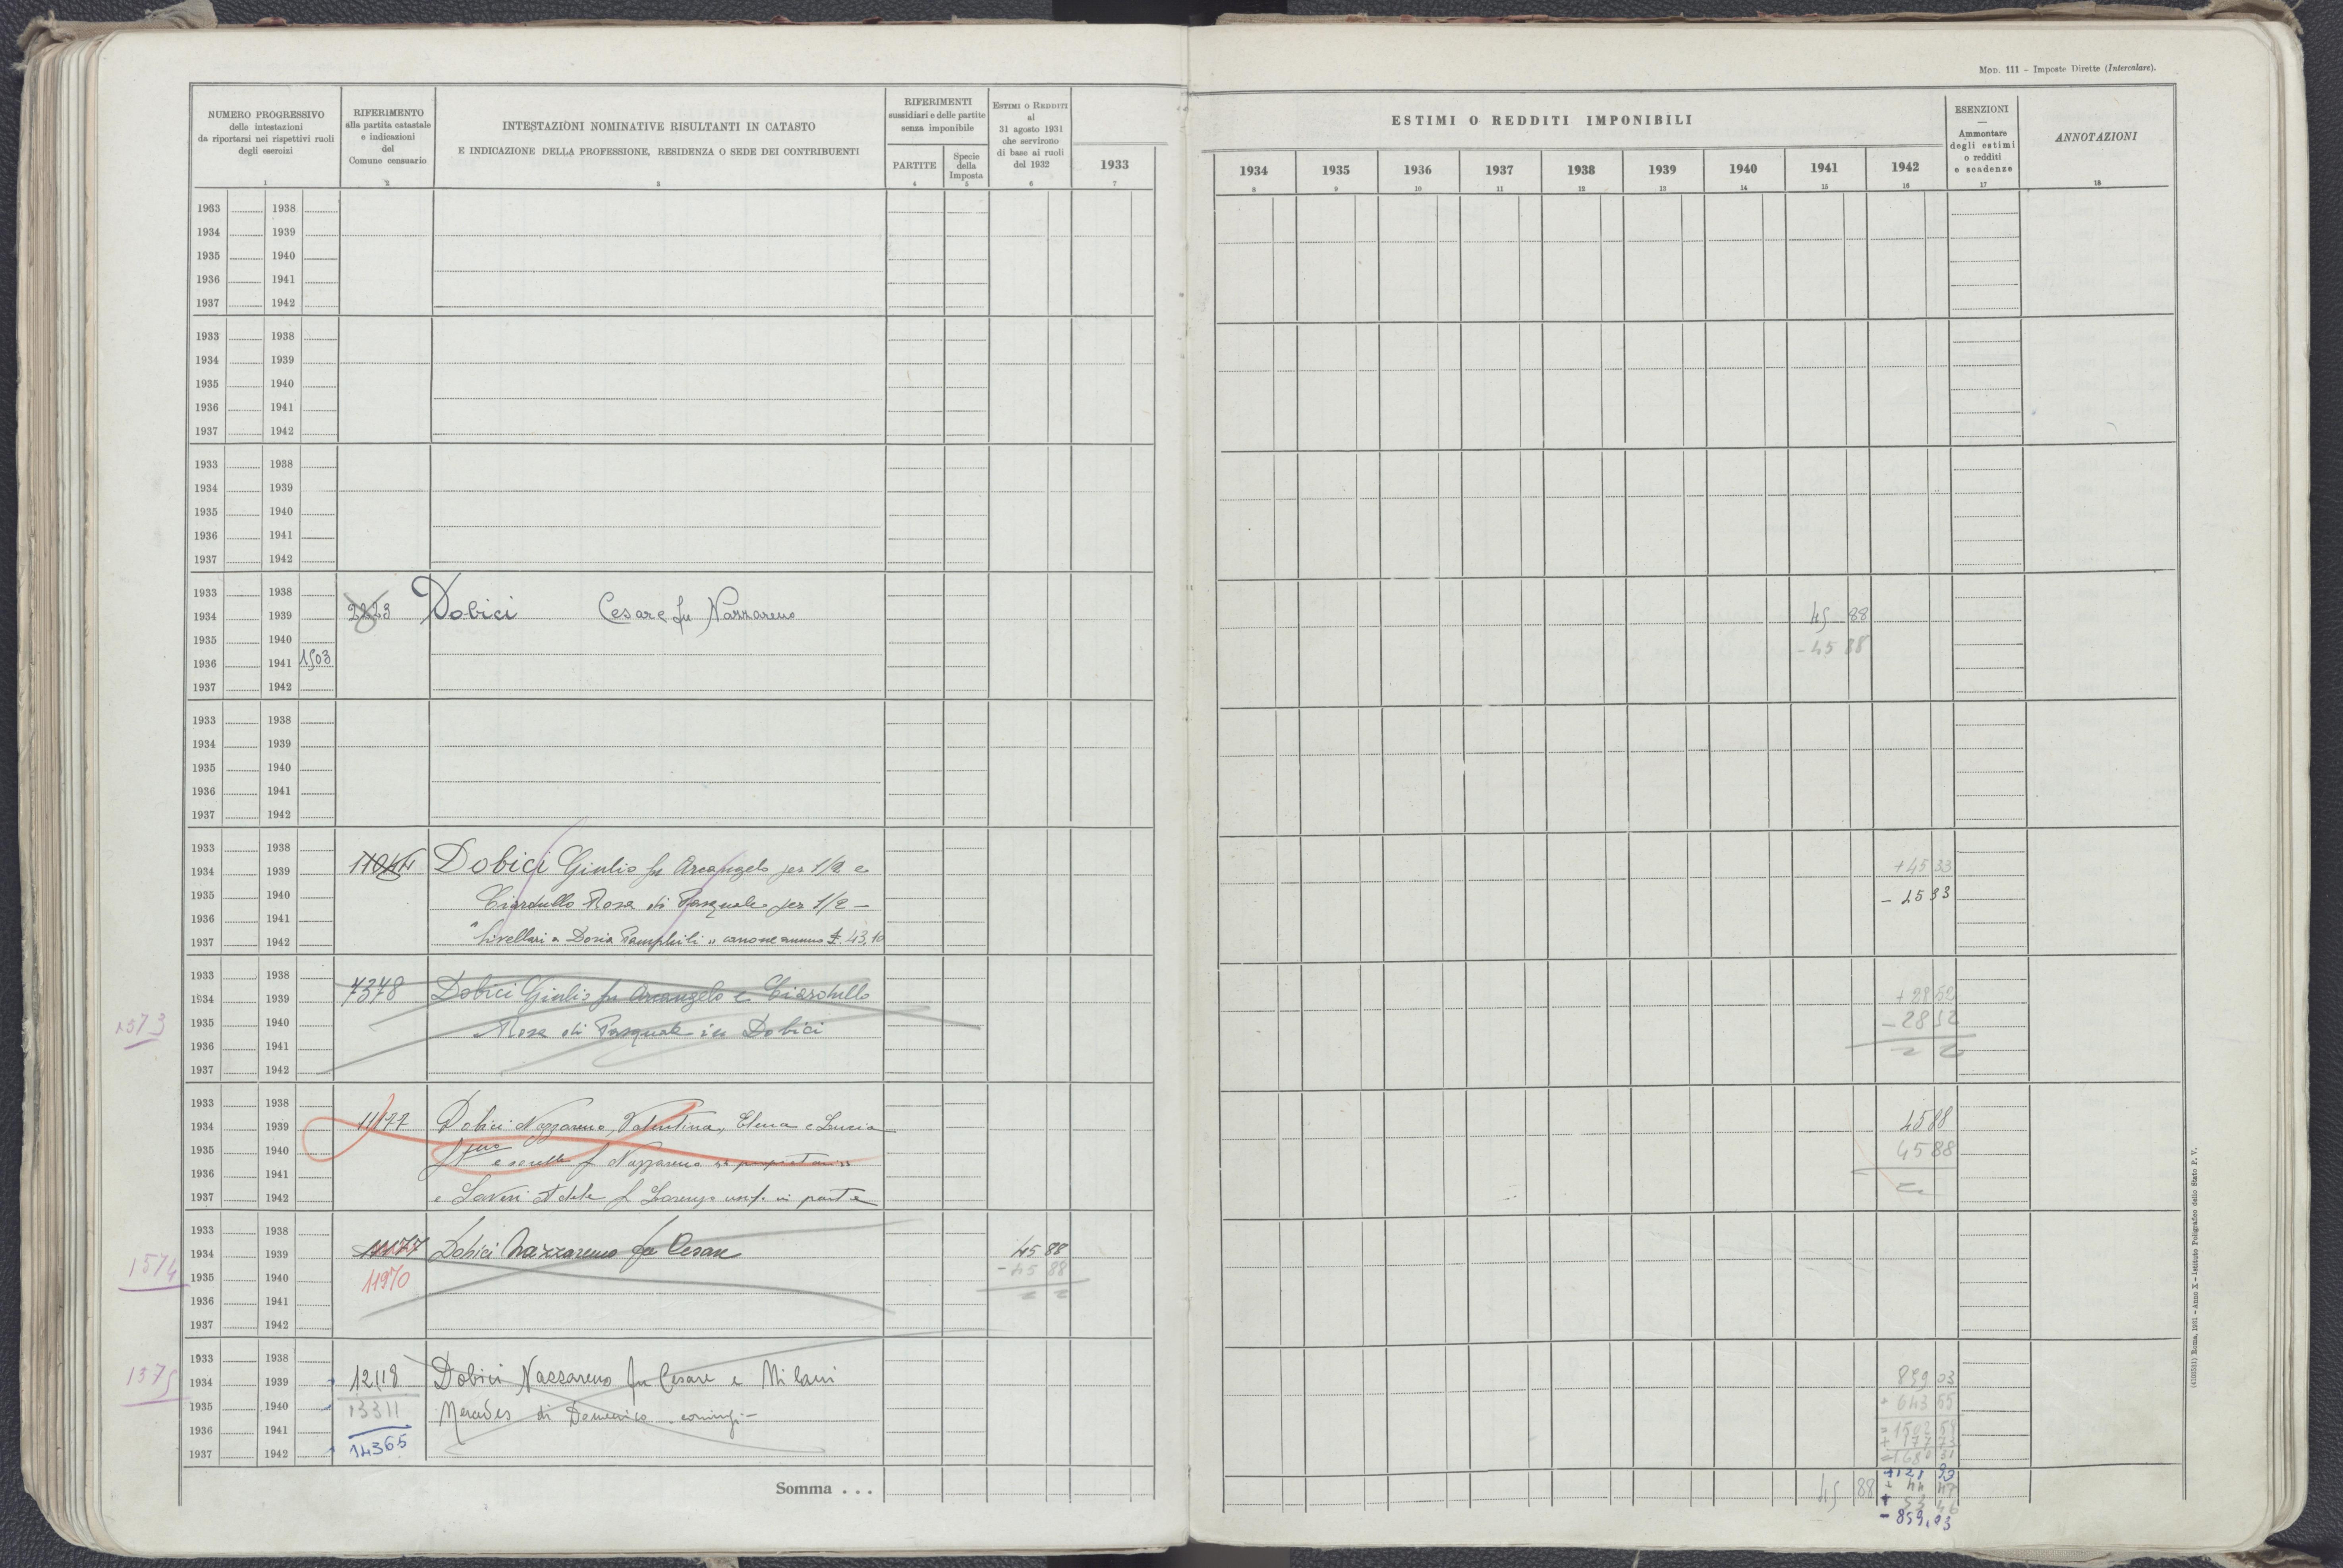 MOD. 111 - Imposte Dirette (Intercalare).
NUMERO PROGRESSIVO
delle intestazioni
da riportarsi nei rispettivi ruoli
degli esercizi
1
RIFERIMENTO
alla partita catastale
e indicazioni
del
Comune censuario
2
INTESTAZIONI NOMINATIVE RISULTANTI IN CATASTO
E INDICAZIONE DELLA PROFESSIONE, RESIDENZA O SEDE DEI CONTRIBUENTI
3
RIFERIMENTI
sussidiari e delle partite
senza imponibile
PARTITE
4
Specie
della
Imposta
5
ESTIMI O REDDITI
al
31 agosto 1931
che servirono
di base ai ruoli
del 1932
6
1933
7
ESTIMI O REDDITI IMPONIBILI
1934 1935 1936 1937 1938 1939 1940 1941 1942
8 9 10 11 12 13 14 15 16
ESENZIONI
—
Ammontare
degli estimi
o redditi
e scadenze
17
ANNOTAZIONI
18
1933 1938
1934 1939
1935 1940
1936 1941
1937 1942
1933 1938
1934 1939
1935 1940
1936 1941
1937 1942
1933 1938
1934 1939
1935 1940
1936 1941
1937 1942
1933 1938
1934 1939 2823 Dobici Cesare fu Nazzareno 45 88
1935 1940 - 45 88
1936 1941 1503
1937 1942
1933 1938
1934 1939
1935 1940
1936 1941
1937 1942
1933 1938
1934 1939 Dobici Giulio fu Arcangelo per 1/2 e +45 33
1935 1940 Ciardullo Rosa di Pasquale per 1/2 - - 45 33
1936 1941
1937 1942 "Livellari a Doria Pamphili" canone annuo £. 43,10
1933 1938
1934 1939 7378 Dobici Giulio fu Arcangelo e Ciardullo + 28 52
1573 1935 1940 Rosa di Pasquale in Dobici - 28 52
1936 1941
1937 1942
1933 1938
1934 1939 11177 Dobici Nazzareno, Valentina, Elena e Lucia 45 88
1935 1940 45 88
1936 1941 f Nazzareno
1937 1942 e Adele f Lorenzo usuf. in parte
1933 1938
1934 1939 11177 Dobici Nazzareno fu Cesare 45 88
1574 1935 1940 11970 - 45 88
1936 1941
1937 1942
1933 1938
1375 1934 1939 12118 Dobici Nazzareno fu Cesare e Milani 859 03
1935 1940 13311 Mercedes di Domenico coniugi - + 643 55
1936 1941 = 1502 58
1937 1942 14365
Somma . . . 45 88
- 859,03
(4100281) Roma, 1931 - Anno X - Istituto Poligrafico dello Stato P. V.